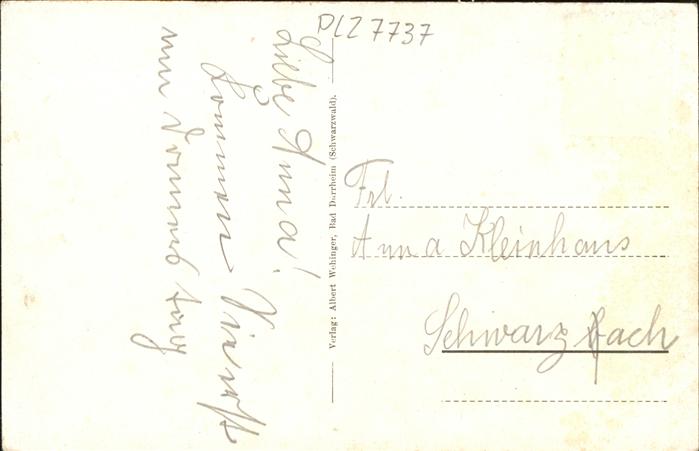 PLZ 7737
Liebe Anna!
Kommen
Donnerstag
Verlag: Albert Wehinger, Bad Dürrheim (Schwarzwald).
Frl.
Anna Kleinhans
Schwarzach